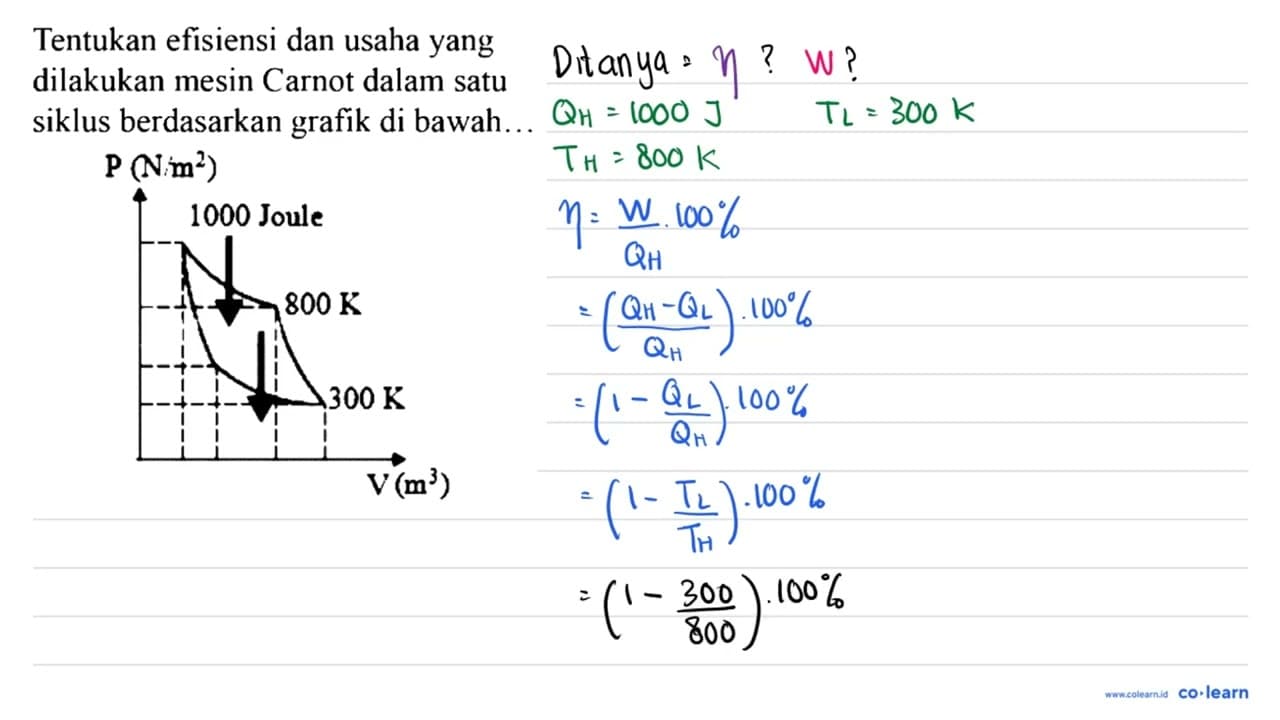 Tentukan efisiensi dan usaha yang
dilakukan mesin Carnot dalam satu
siklus berdasarkan grafik di bawah...
P (N/m²)
1000 Joule
800 K
300 K
V (m³)
Ditanya = η ? W ?
QH = 1000 J TL = 300 K
TH = 800 K
η = W/QH . 100%
= (QH - QL / QH) . 100%
= (1 - QL/QH) . 100%
= (1 - TL/TH) . 100%
= (1 - 300/800) . 100%
www.colearn.id co·learn